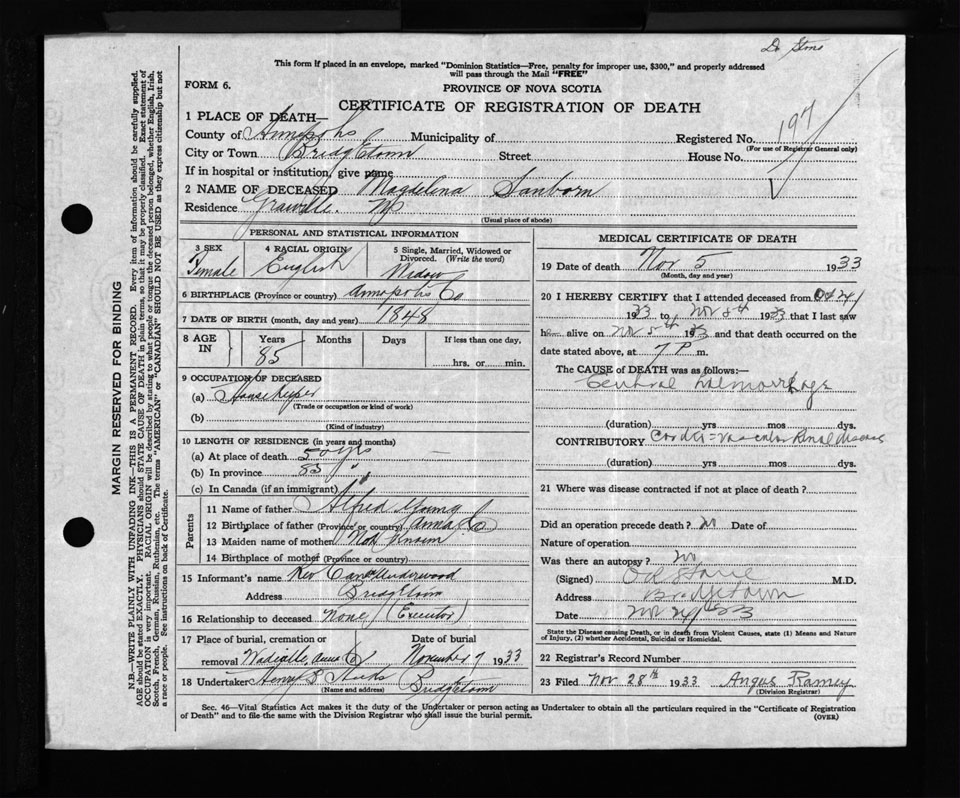 Dr Stone
This form if placed in an envelope, marked "Dominion Statistics—Free, penalty for improper use, $300," and properly addressed
will pass through the Mail "FREE"
FORM 6.
PROVINCE OF NOVA SCOTIA
CERTIFICATE OF REGISTRATION OF DEATH
197
1 PLACE OF DEATH—
County of Annapolis Municipality of Registered No.
(For use of Registrar General only)
City or Town Bridgetown Street House No.
If in hospital or institution, give name
2 NAME OF DECEASED Magdelena Sanborn
Residence Granville. NS
(Usual place of abode)
PERSONAL AND STATISTICAL INFORMATION
3 SEX 4 RACIAL ORIGIN 5 Single, Married, Widowed or
Divorced. (Write the word)
Female English Widow
6 BIRTHPLACE (Province or country) Annapolis Co
7 DATE OF BIRTH (month, day and year) 1848
8 AGE IN Years Months Days If less than one day,
85 hrs. or min.
9 OCCUPATION OF DECEASED
(a) Housekeeper
(Trade or occupation or kind of work)
(b)
(Kind of industry)
10 LENGTH OF RESIDENCE (in years and months)
(a) At place of death 50 yrs —
(b) In province 85 "
(c) In Canada (if an immigrant) "
Parents
11 Name of father Alfred Young
12 Birthplace of father (Province or country) Anna Co
13 Maiden name of mother Not Known
14 Birthplace of mother (Province or country)
15 Informant's name Rev Canon Underwood
Address Bridgetown
16 Relationship to deceased None (Executor)
17 Place of burial, cremation or Date of burial
removal Anna Co November 7 1933
18 Undertaker Henry B Hicks Bridgetown
(Name and address)
MEDICAL CERTIFICATE OF DEATH
19 Date of death Nov 5 1933
(Month, day and year)
20 I HEREBY CERTIFY that I attended deceased from Oct 24
1933 to Nov 5th 1933 that I last saw
h alive on Nov 5th 1933 and that death occurred on the
date stated above, at 7 P m.
The CAUSE of DEATH was as follows:—
Cerebral haemorrhage
(duration) yrs mos dys.
CONTRIBUTORY Cardio-vascular Renal disease
(duration) yrs mos dys.
21 Where was disease contracted if not at place of death?
Did an operation precede death? no Date of
Nature of operation
Was there an autopsy? no
(Signed) Stone M.D.
Address Bridgetown
Date Nov 33
State the Disease causing Death, or in death from Violent Causes, state (1) Means and Nature
of Injury, (2) whether Accidental, Suicidal or Homicidal.
22 Registrar's Record Number
23 Filed Nov 28th 1933 Angus Ramey
(Division Registrar)
Sec. 46—Vital Statistics Act makes it the duty of the Undertaker or person acting as Undertaker to obtain all the particulars required in the "Certificate of Registration
of Death" and to file the same with the Division Registrar who shall issue the burial permit. (OVER)
MARGIN RESERVED FOR BINDING
N.B.—WRITE PLAINLY WITH UNFADING INK—THIS IS A PERMANENT RECORD. Every item of information should be carefully supplied.
AGE should be stated EXACTLY. PHYSICIANS should STATE CAUSE OF DEATH in plain terms, so that it may be properly classified. Exact statement of
OCCUPATION is very important. RACIAL ORIGIN will be described by stating to what people or tongue the deceased person belonged, whether English, Irish,
Scotch, French, German, Russian, Ruthenian, etc. The terms "AMERICAN" or "CANADIAN" SHOULD NOT BE USED as they express citizenship but not
a race or people. See instructions on back of Certificate.